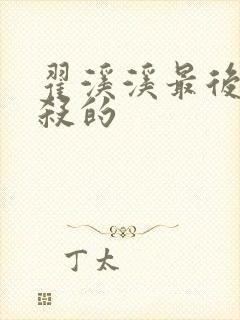 翟溪溪最後
殺的
丁太